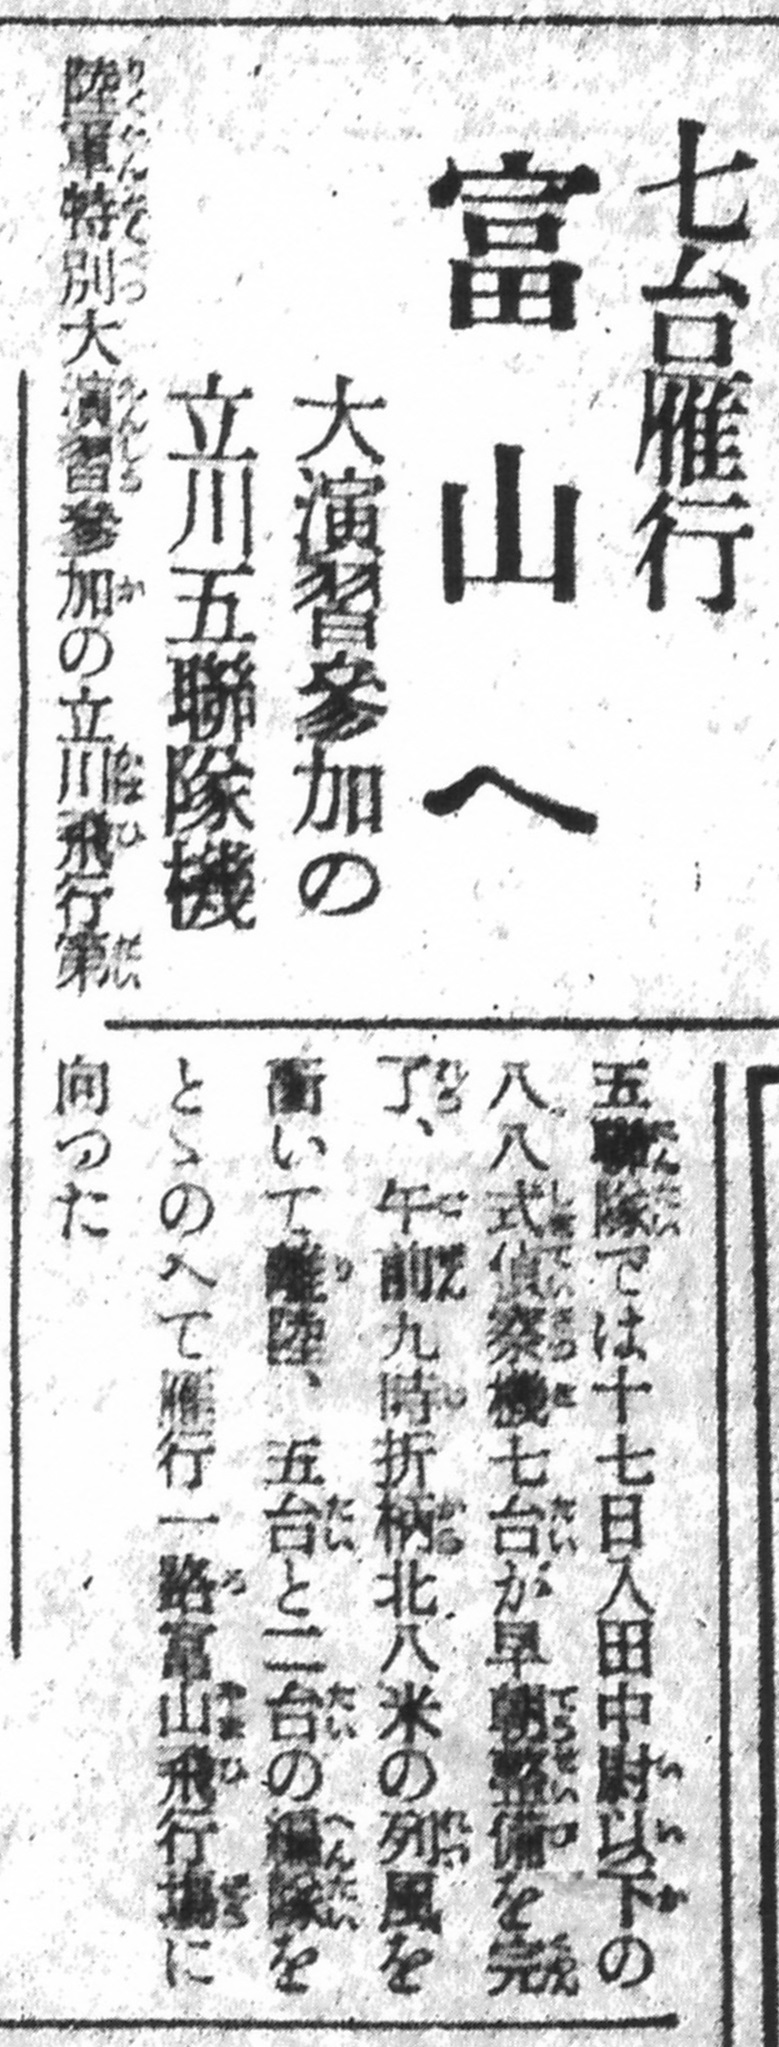 七台雁行
富山へ
大演習參加の
立川五聯隊機
陸軍特別大演習參加の立川飛行第
五聯隊では十七日入田中尉以下の
八八式偵察機七台が早朝整備を完
了、午前九時折柄北八米の列風を
衝いて離陸、五台と二台の編隊を
とゝのへて雁行一路富山飛行場に
向つた